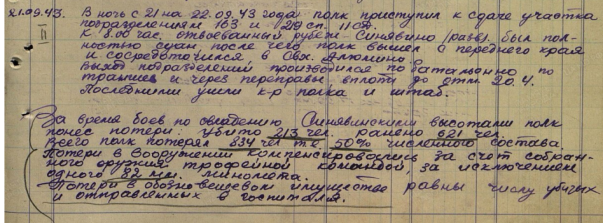 21.09.43. В ночь с 21 на 22.09.43 года полк приступил к сдаче участка
подразделениям 163 и 1219 сп. 11 СД.
К 8.00 час. отвоеванный рубеж Синявино /разв/. был пол-
ностью сдан, после чего полк вышел с переднего края
и сосредоточился в Свх. Аполлино.
Выход подразделений производился побатальонно по
траншеи и через переправы вплоть до отм. 20.4.
Последними ушли к-р полка и штаб.
За время боев по овладению Синявинскими высотами полк
понес потери: убито 213 чел. ранено 621 чел.
Всего полк потерял 834 чел т.е. 50% численного состава.
Потери в вооружении компенсировались за счет собран-
ного оружия трофейной командой, за исключением
одного 82 м.м. миномета.
Потери в обозно-вещевом имуществе равны числу убитых
и отправленных в госпиталя.